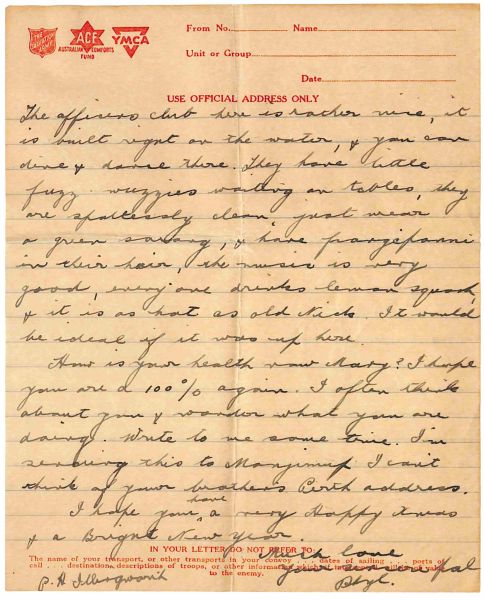 THE SALVATION ARMY
ACF
AUSTRALIAN COMFORTS
FUND
YMCA
From No. Name
Unit or Group
Date
USE OFFICIAL ADDRESS ONLY
The officers club here is rather nice, it
is built right on the water, & you can
dine & dance there. They have little
fuzz wuzzies waiting on tables, they
are spotlessly clean, just wear
a green sarong, & have frangipanni
in their hair, the music is very
good, everyone drinks lemon squash,
& it is as hot as old Nick. It would
be ideal if it was up here.
How is your health now Mary? I hope
you are a 100% again. I often think
about you & wonder what you are
doing. Write to me some time. I'm
sending this to Manjimup I can't
think of your brothers Perth address.
I hope you have a very Happy Xmas
& a Bright New Year.
IN YOUR LETTER DO NOT REFER TO:
Much love
The name of your transport, or other transports in your convoy . . . dates of sailing . . . ports of
call . . . destination, descriptions of troops, or other information which of value
to the enemy.
your old pal
P. H Illingworth
Phyl.